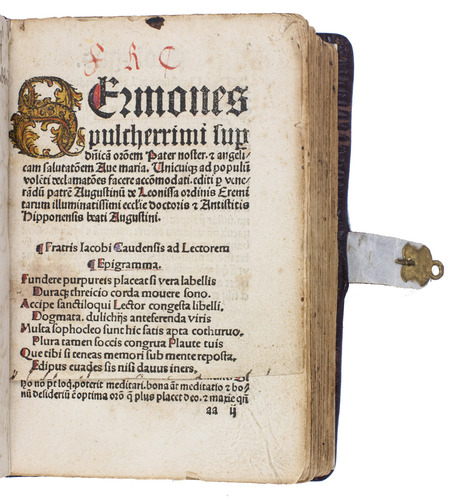 F R C
SErmones
pulcherrimi sup
dn̄icā orōem Pater noster. & angeli-
cam salutatōem Aue maria. Unicuiqꝫ ad populū
volēti declamatōes facere accōmodati. editi p̲ vene-
rādū patrē Augustinū de Leonissa ordinis Eremi
tarum illuminatissimi ecclīe doctoris & Antistitis
Hipponensis beati Augustini.
¶Fratris Iacobi Gaudensis ad Lectorem
¶Epigramma.
Fundere purpureis placeat si vera labellis
Duraqꝫ threicio corda mouere sono.
Accipe sanctiloqui Lector congesta libelli.
Dogmata. dulichijs anteferenda viris
Multa sophocleo sunt hic satis apta cothurno.
Plura tamen soccis congrua Plaute tuis
Que tibi si teneas memori sub mente reposta.
Edipus euades sis nisi dauus iners.
ro nō pt loq̄. poterit meditari. bona āt meditatio & bo-
nū desideriū ē optima orō q̄ plus placet deo. & maxie qn̄
aa ij